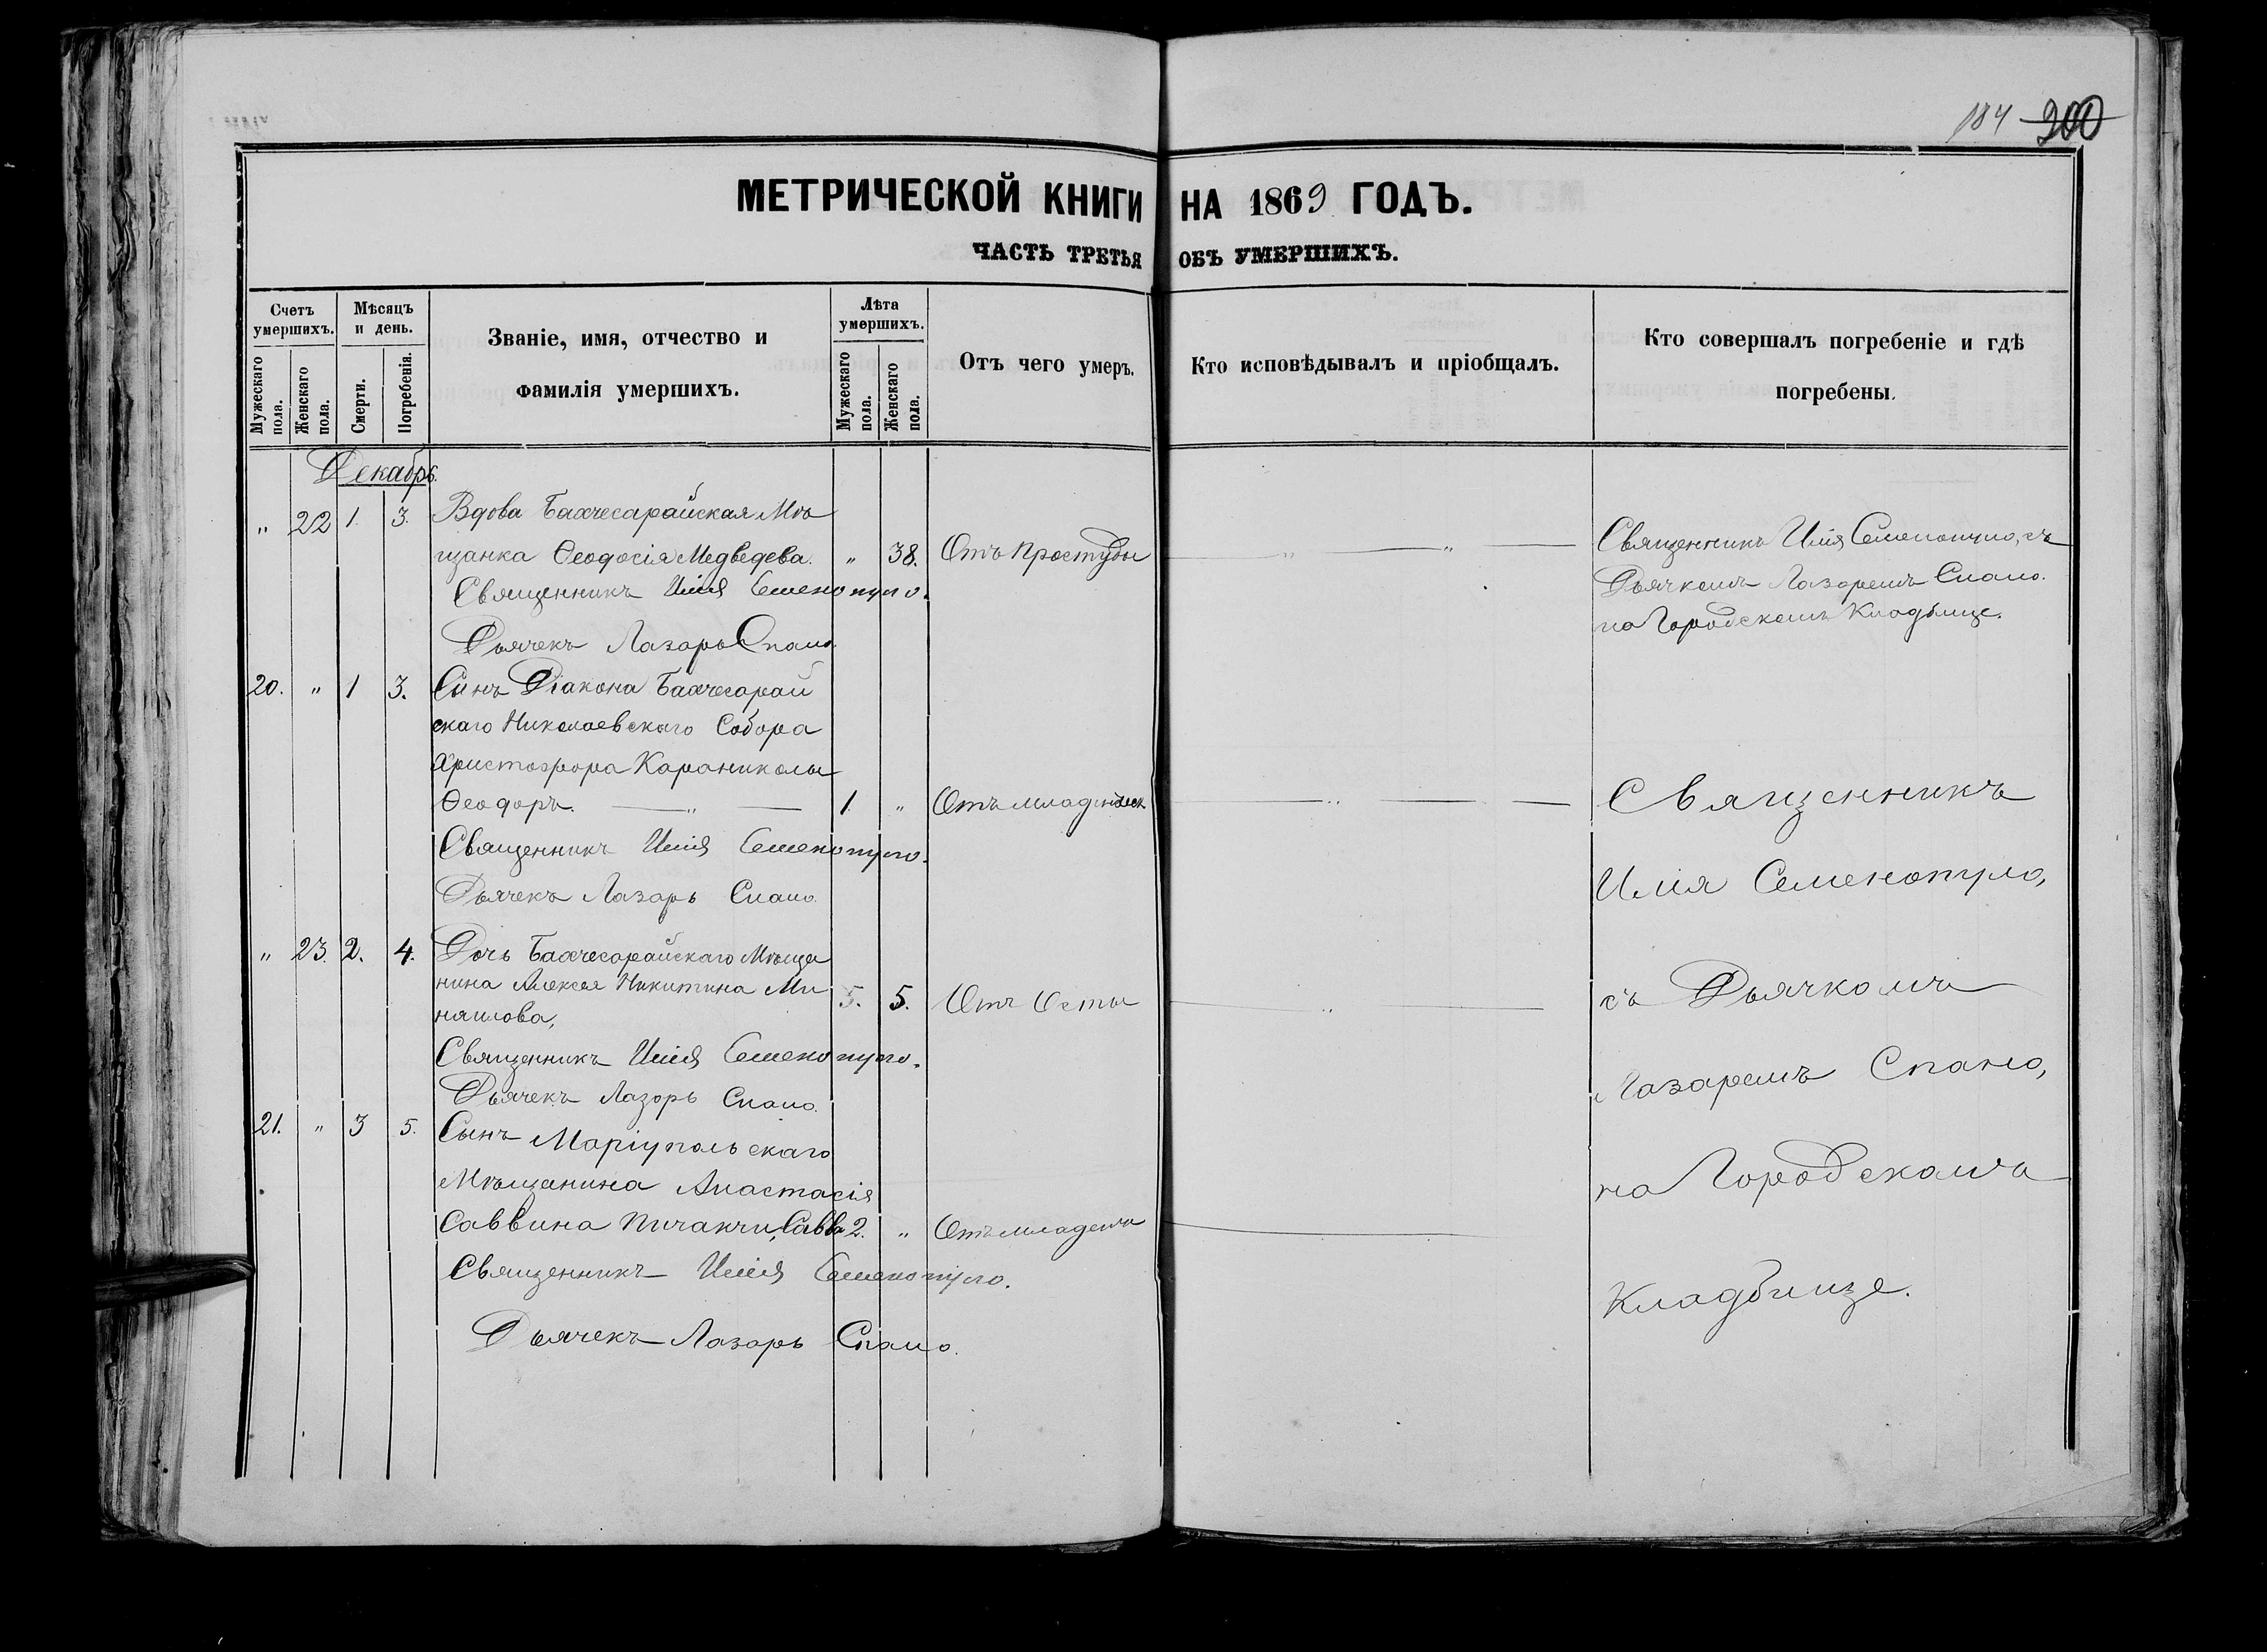 184 200
МЕТРИЧЕСКОЙ КНИГИ НА 1869 ГОДЪ.
ЧАСТЬ ТРЕТЬЯ ОБЪ УМЕРШИХЪ.
Счетъ умершихъ.
Мужескаго пола.
Женскаго пола.
Мѣсяцъ и день.
Смерти.
Погребенія.
Званіе, имя, отчество и
фамилія умершихъ.
Лѣта умершихъ.
Мужескаго пола.
Женскаго пола.
Отъ чего умеръ.
Кто исповѣдывалъ и пріобщалъ.
Кто совершалъ погребеніе и гдѣ
погребены.
Декабрь.
" 22 1. 3. Вдова Бахчесарайская Мѣ
щанка Ѳеодосія Медведева. " 38. Отъ простуды " "
Священникъ Илія Семенопуло.
Дьячекъ Лазарь Спано.
Священникъ Илія Семенопуло, съ
Дьячкомъ Лазаремъ Спано.
на Городскомъ Кладбище.
20. " 1 3. Сынъ Діакона Бахчесарай
скаго Николаевскаго Собора
Христофора Караниколы
Ѳеодоръ. " 1. " Отъ "
Священникъ Илія Семенопуло.
Дьячекъ Лазарь Спано.
" 23. 2. 4. Дочь Бахчесарайскаго Мѣща
нина Алексея Никитина Ми
5. 5. Отъ Оспы "
Священникъ Илія Семенопуло.
Дьячекъ Лазарь Спано.
21. " 3 5. Сынъ Маріупольскаго
Мѣщанина Анастасія
Саввина Пичакчи, Савва 2. " Отъ
Священникъ Илія Семенопуло.
Дьячекъ Лазарь Спано.
Священникъ
Илія Семенопуло,
съ Дьячкомъ
Лазаремъ Спано,
на Городскомъ
Кладбище.